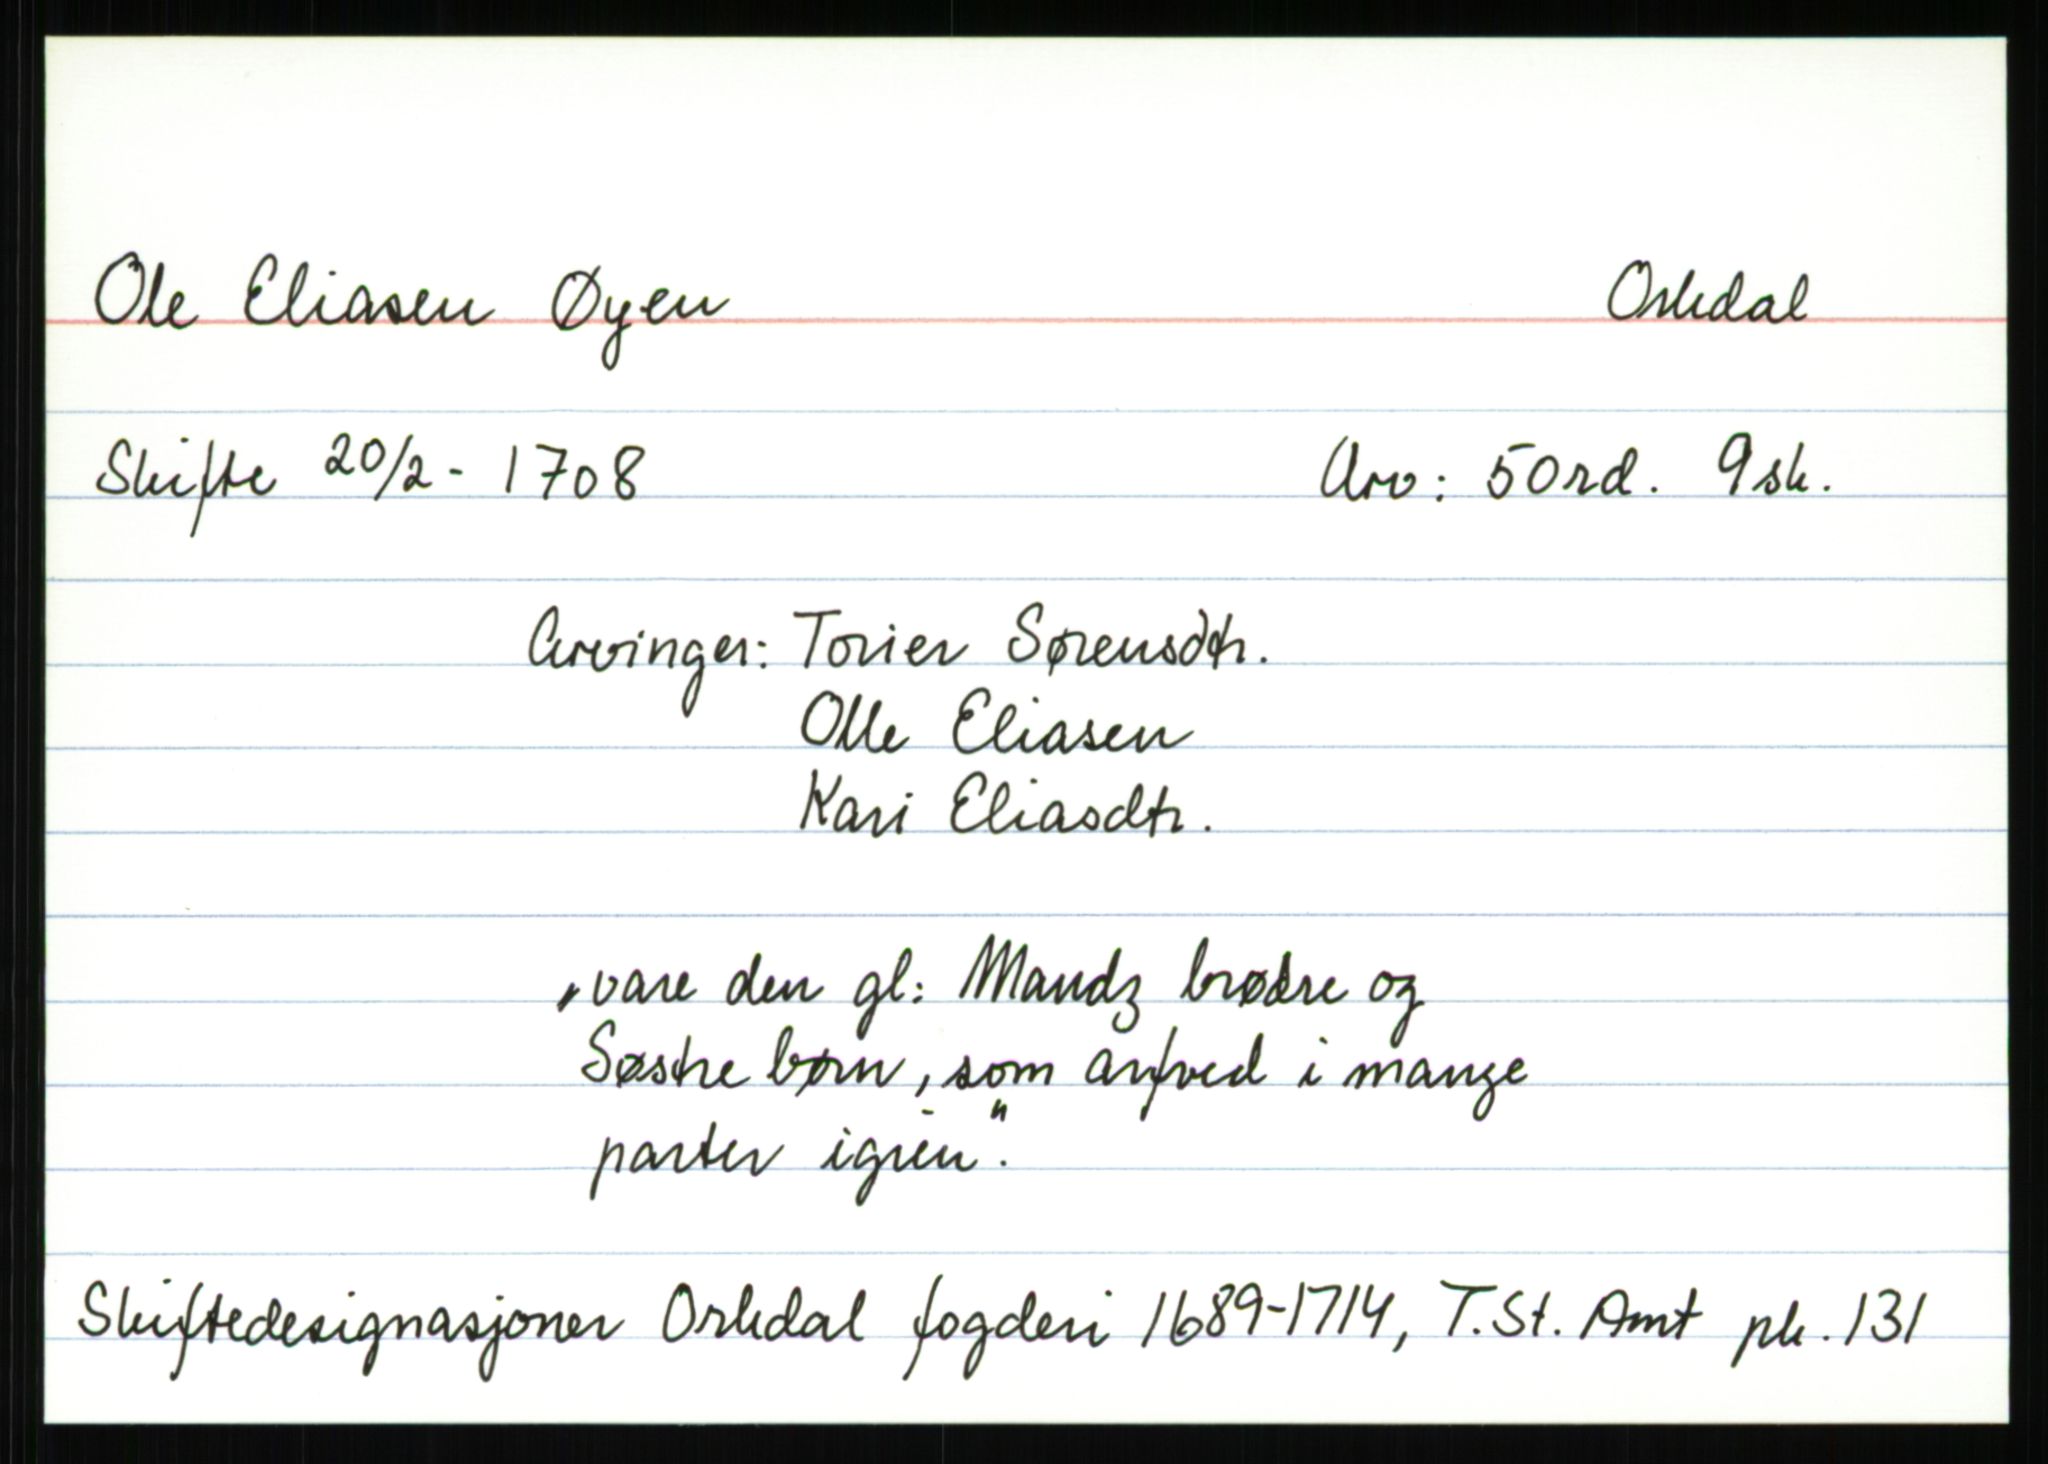 Ole Eliasen Øyen Orkdal
Skifte 20/2 - 1708 Arv: 50 rd. 9 sk.
Arvinger: Torier Sørensdtr.
Olle Eliasen
Kari Eliasdtr.
„vare den gl: Mandz brødre og
Søstre børn, som arfved i mange
parter igien".
Skiftedesignasjoner Orkdal fogderi 1689-1714, T.St. Amt pk. 131